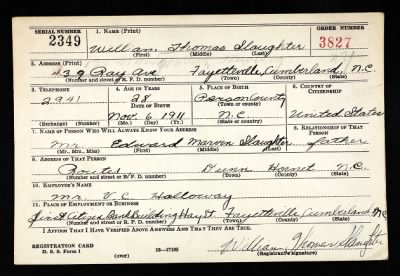 SERIAL NUMBER
1. NAME (Print)
ORDER NUMBER
2349
William Thomas Slaughter
3827
(First) (Middle) (Last)
2. ADDRESS (Print)
439 Ray Ave Fayetteville, Cumberland, N.C.
(Number and street or R. F. D. number) (Town) (County) (State)
3. TELEPHONE
4. AGE IN YEARS
5. PLACE OF BIRTH
6. COUNTRY OF CITIZENSHIP
2941
28
Person County
DATE OF BIRTH
(Town or county)
Nov. 6, 1911
N.C.
United States
(Exchange) (Number)
(Mo.) (Day) (Yr.)
(State or country)
7. NAME OF PERSON WHO WILL ALWAYS KNOW YOUR ADDRESS
8. RELATIONSHIP OF THAT PERSON
Mr. Edward Marvin Slaughter
father
(Mr., Mrs., Miss) (First) (Middle) (Last)
9. ADDRESS OF THAT PERSON
Dunn N.C.
(Number and street or R. F. D. number) (Town) (County) (State)
10. EMPLOYER'S NAME
Mr. V. C. Holloway
11. PLACE OF EMPLOYMENT OR BUSINESS
First Citizens Bank Building Hay St. Fayetteville, Cumberland, N.C.
(Number and street or R. F. D. number) (Town) (County) (State)
I AFFIRM THAT I HAVE VERIFIED ABOVE ANSWERS AND THAT THEY ARE TRUE.
William Thomas Slaughter
REGISTRATION CARD
D. S. S. Form 1
16—17105
(Registrant's signature)